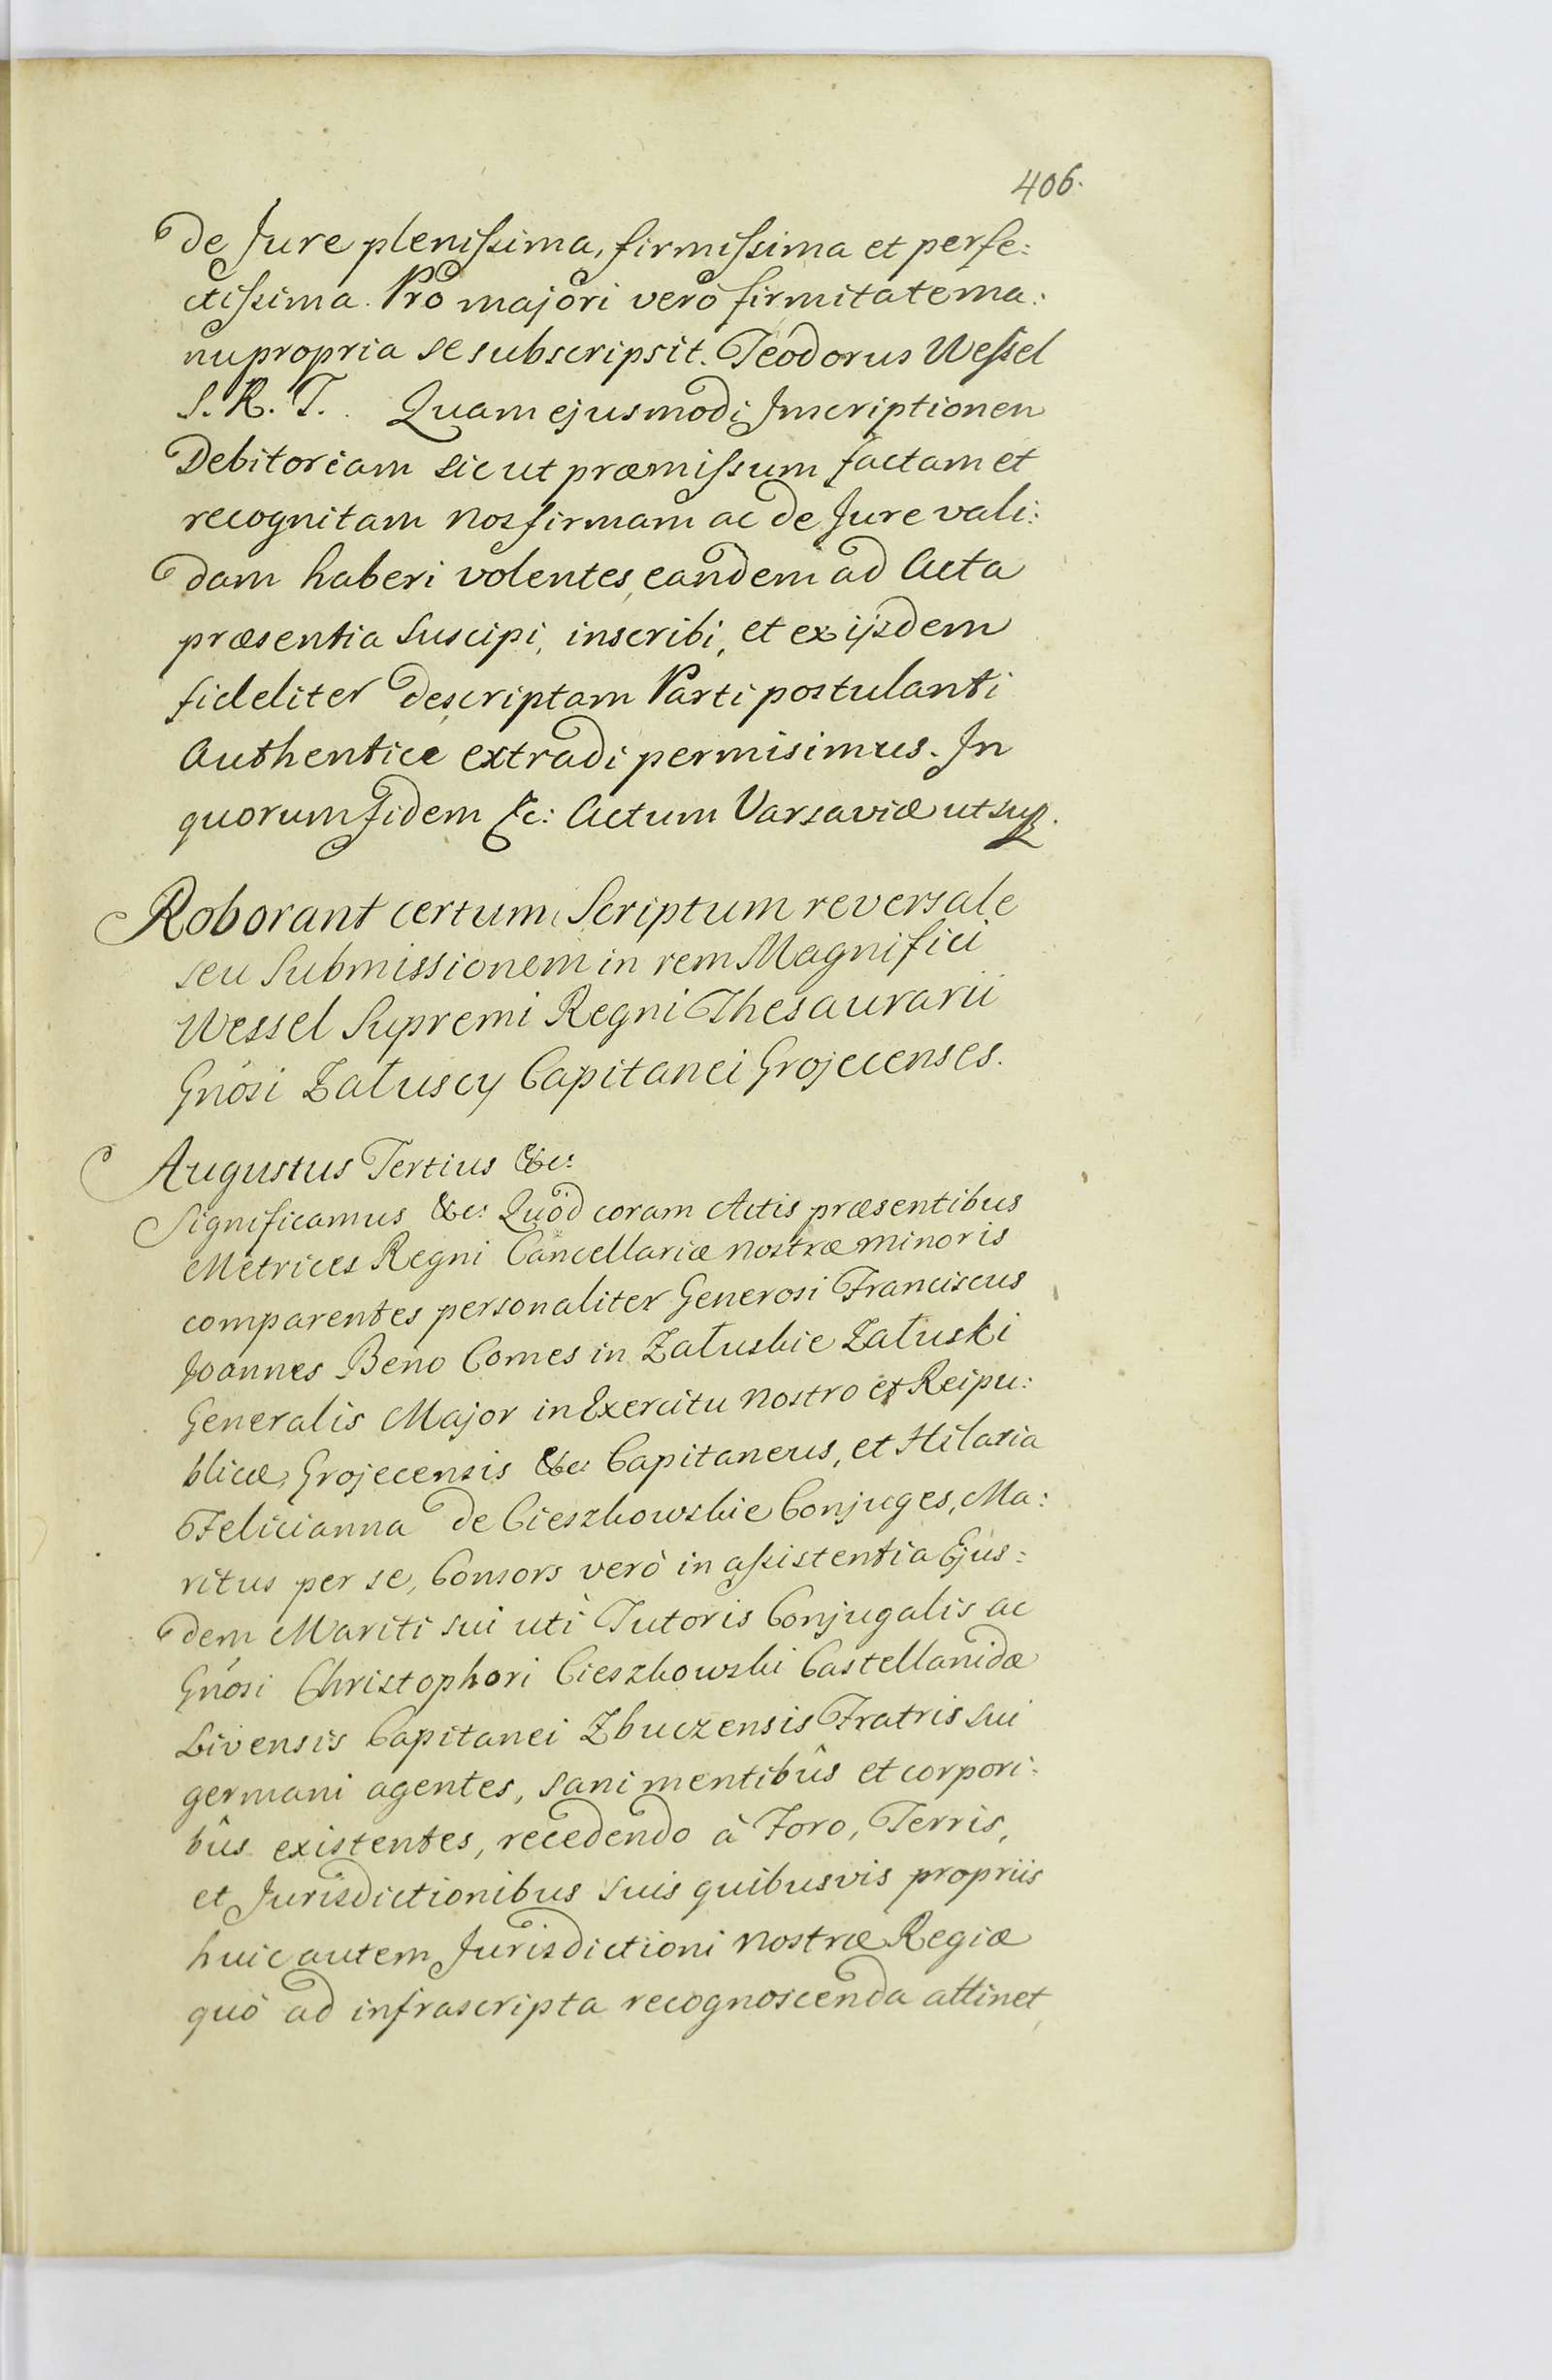 406.
de Jure plenissima, firmissima et perfe:
ctissima. Pro majori verò firmitate ma:
nu propria se subscripsit. Teodorus Wessel
S. R. T. Quam ejusmodi Inscriptionem
Debitoriam sic ut præmissum factam et
recognitam nos firmam ac de Jure vali:
dam haberi volentes, eandem ad Acta
præsentia suscipi, inscribi, et ex ijsdem
fideliter descriptam Parti postulanti
Authentice extradi permisimus. In
quorum fidem &c: Actum Varsaviæ ut sup.
Roborant certum Scriptum reversale
seu Submissionem in rem Magnifici
Wessel Supremi Regni Thesaurarii
Gnosi Załuscy Capitanei Grojecenses.
Augustus Tertius &c:
Significamus &c: Quod coram Actis præsentibus
Metrices Regni Cancellariæ nostræ minoris
comparentes personaliter Generosi Franciscus
Joannes Beno Comes in Załuskie Załuski
Generalis Major in Exercitu nostro et Reipu:
blicæ, Grojecensis &c: Capitaneus, et Hilaria
Felicianna de Cieszkowskie Conjuges, Ma:
ritus per se, Consors verò in assistentia Ejus:
dem Mariti sui uti Tutoris Conjugalis ac
Gnosi Christophori Cieszkowski Castellanidæ
Livensis Capitanei Zbuczensis Fratris sui
germani agentes, sani mentibûs et corpori:
bûs existentes, recedendo à Foro, Terris,
et Jurisdictionibus suis quibusvis propriis
huic autem Jurisdictioni nostræ Regiæ
quò ad infrascripta recognoscenda attinet,